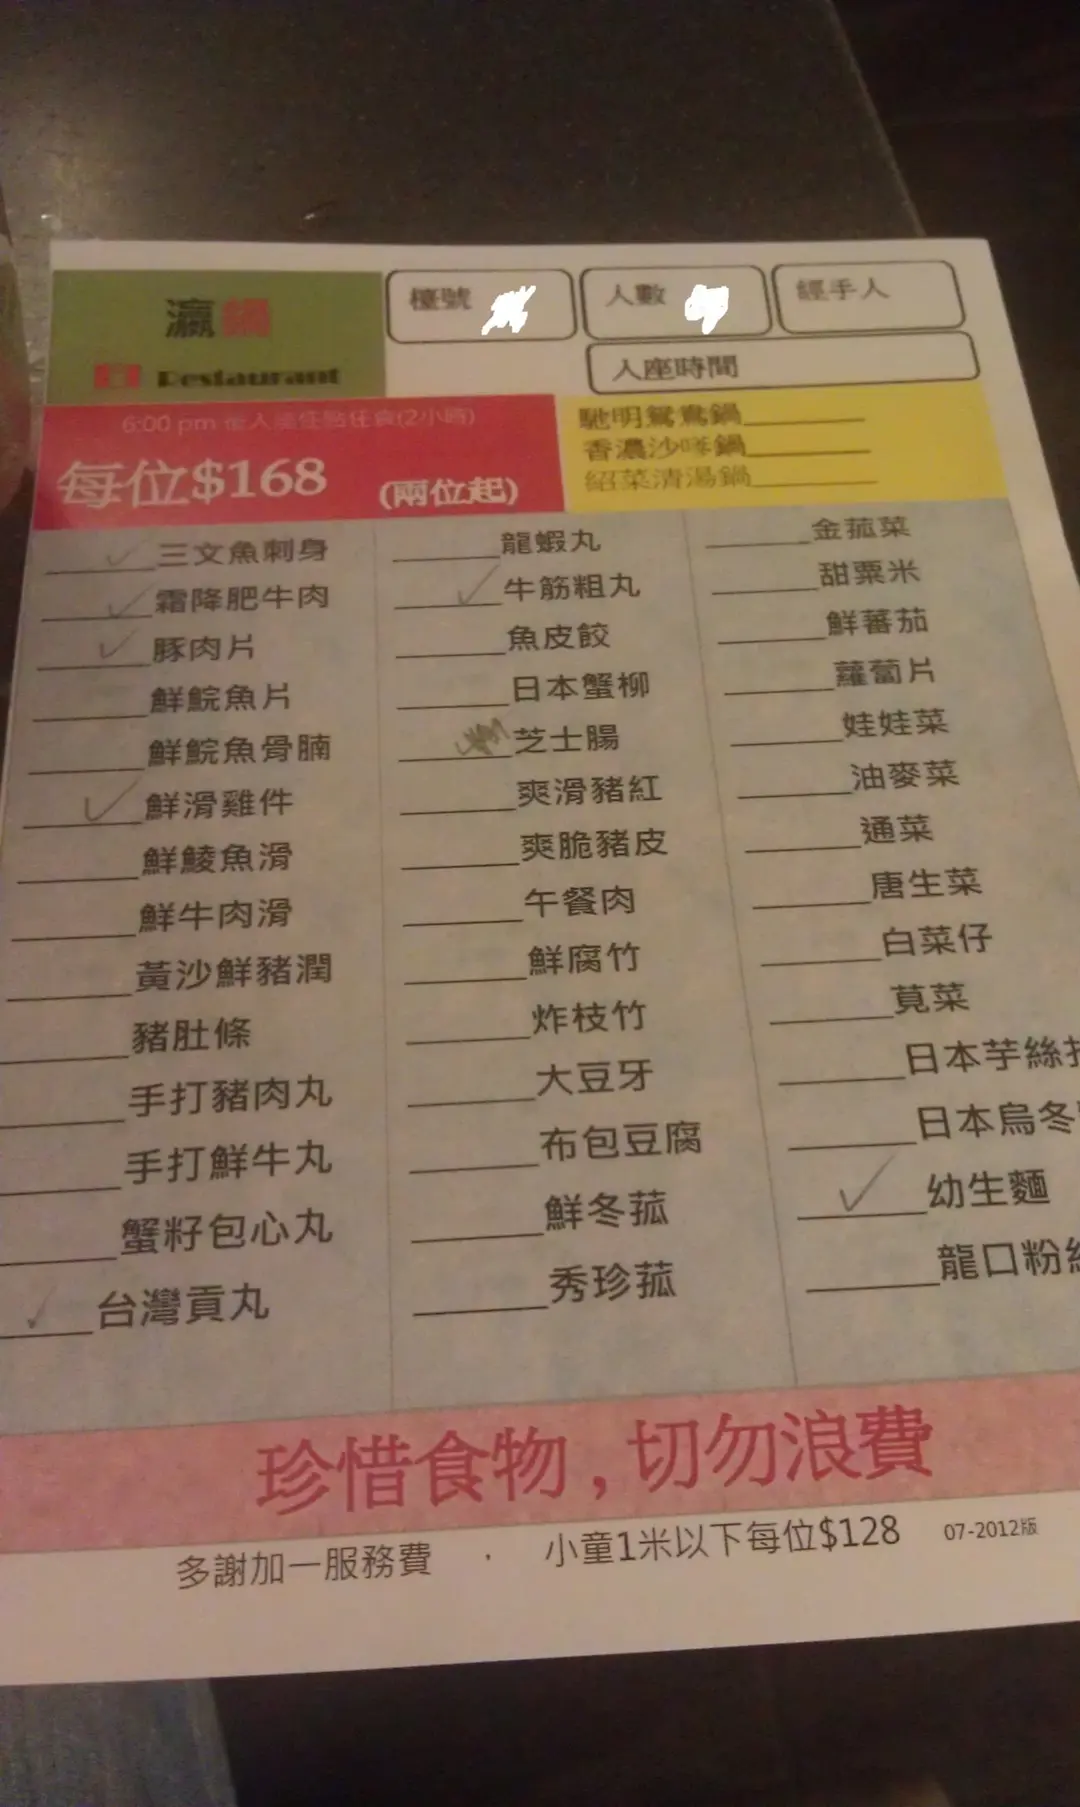 瀛鍋
Restaurant
檯號
人數
經手人
入座時間
6:00 pm 後入座任點任食(2小時)
每位$168
(兩位起)
馳明鴛鴦鍋
香濃沙嗲鍋
紹菜清湯鍋
三文魚刺身
霜降肥牛肉
豚肉片
鮮鯇魚片
鮮鯇魚骨腩
鮮滑雞件
鮮鯪魚滑
鮮牛肉滑
黃沙鮮豬潤
豬肚條
手打豬肉丸
手打鮮牛丸
蟹籽包心丸
台灣貢丸
龍蝦丸
牛筋粗丸
魚皮餃
日本蟹柳
芝士腸
爽滑豬紅
爽脆豬皮
午餐肉
鮮腐竹
炸枝竹
大豆牙
布包豆腐
鮮冬菰
秀珍菰
金菰菜
甜粟米
鮮蕃茄
蘿蔔片
娃娃菜
油麥菜
通菜
唐生菜
白菜仔
莧菜
日本芋絲
日本烏冬
幼生麵
龍口粉
珍惜食物 , 切勿浪費
多謝加一服務費 · 小童1米以下每位$128 07-2012版